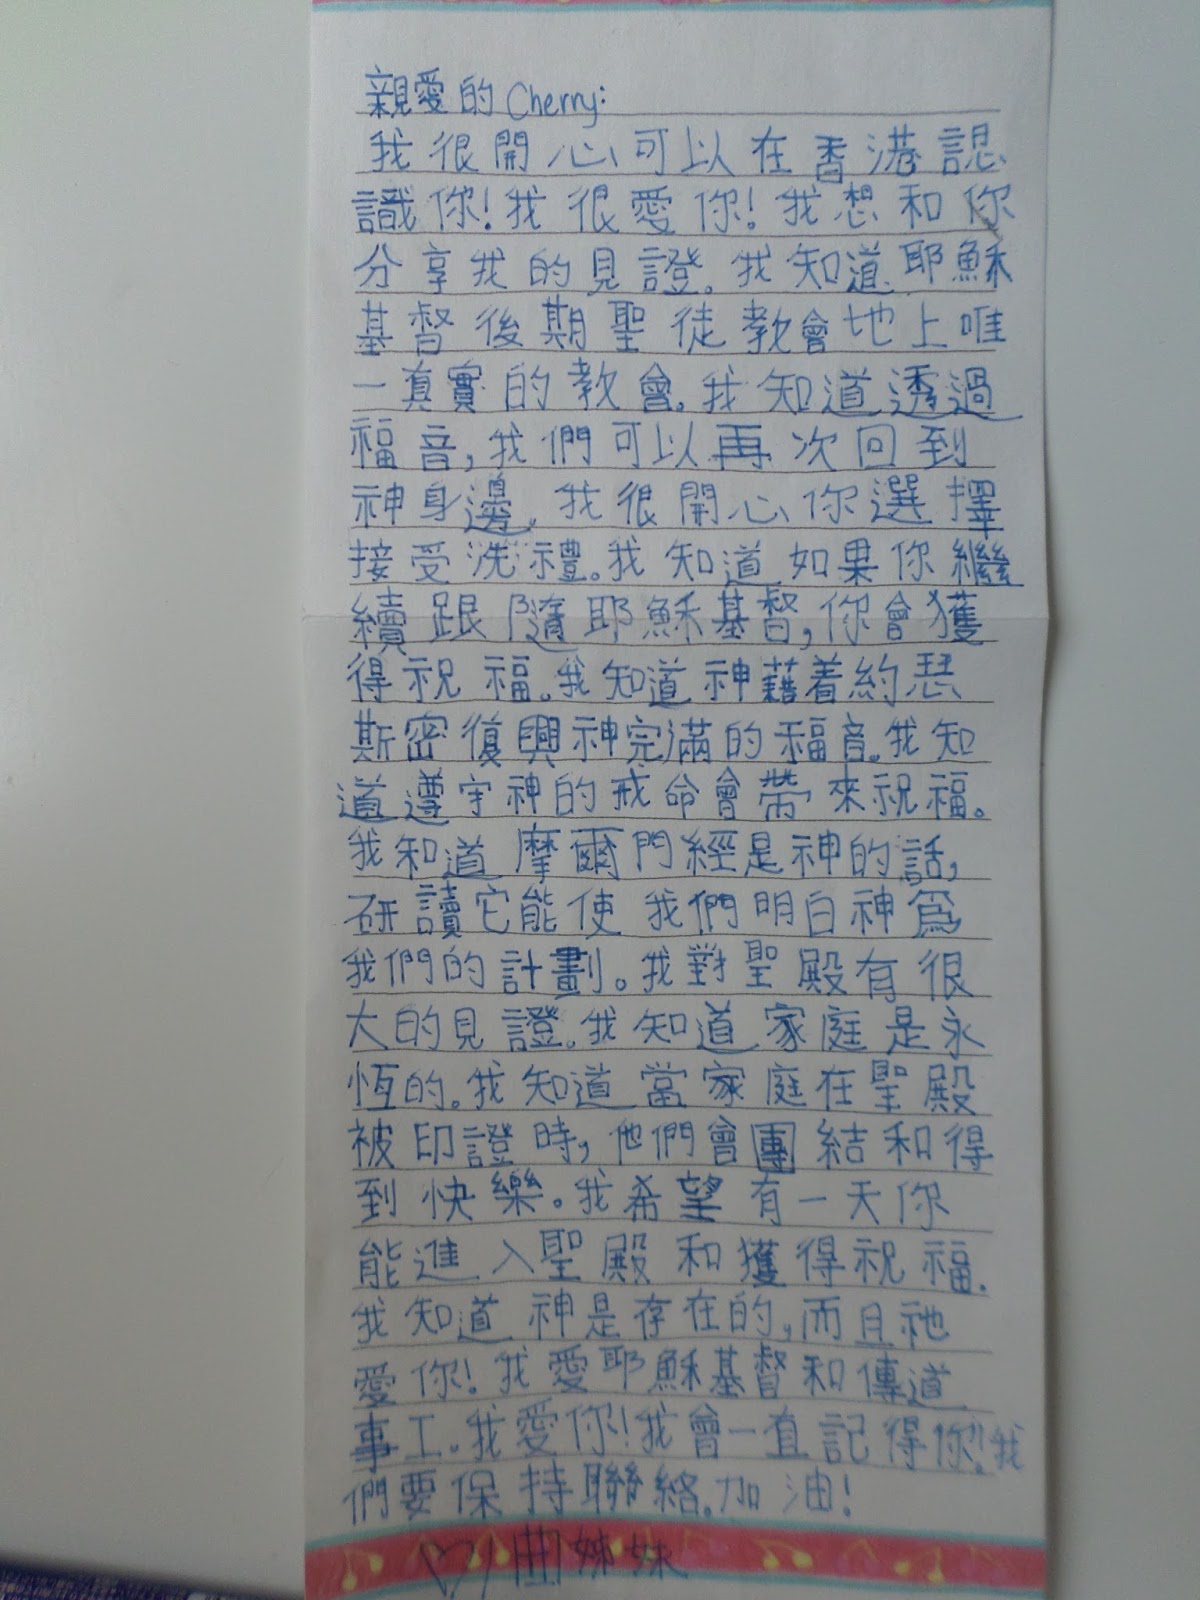 親愛的 Cherry:
我很開心可以在香港認
識你!我很愛你!我想和你
分享我的見證。我知道耶穌
基督後期聖徒教會地上唯
一真實的教會。我知道透過
福音,我們可以再次回到
神身邊。我很開心你選擇
接受洗禮。我知道如果你繼
續跟隨耶穌基督,你會獲
得祝福。我知道神藉着約瑟
斯密復興神完滿的福音。我知
道遵守神的戒命會帶來祝福。
我知道摩爾門經是神的話,
研讀它能使我們明白神為
我們的計劃。我對聖殿有很
大的見證。我知道家庭是永
恆的。我知道當家庭在聖殿
被印證時,他們會團結和得
到快樂。我希望有一天你
能進入聖殿和獲得祝福.
我知道神是存在的,而且祂
愛你!我愛耶穌基督和傳道
事工.我愛你!我會一直記得你!我
們要保持聯絡.加油!
♡曲姊妹